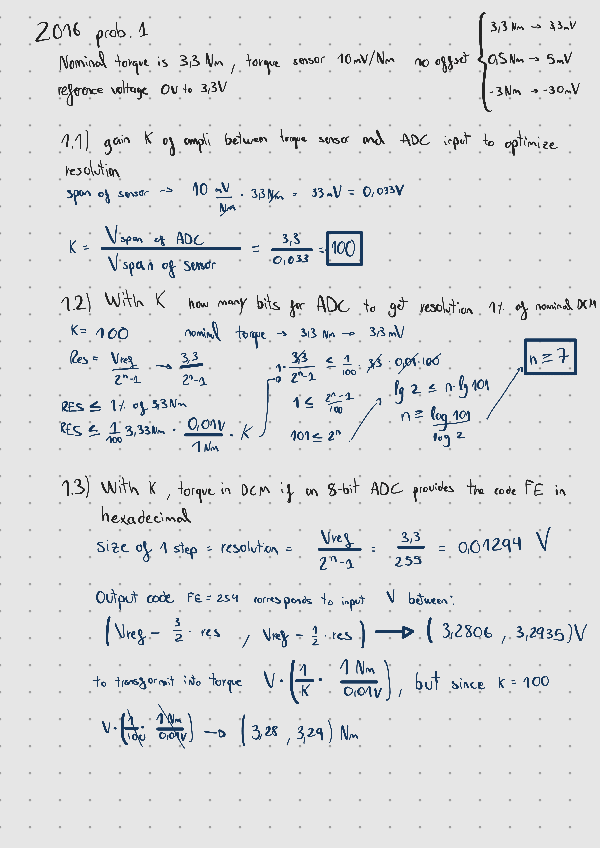 2016 prob. 1
Nominal torque is 3,3 Nm, torque sensor 10mV/Nm no offset
reference voltage 0V to 3,3V
3,3 Nm → 33mV
0,5Nm → 5mV
-3Nm → -30mV
1.1) gain K of ampli between torque sensor and ADC input to optimize
resolution
span of sensor → 10 mV/Nm · 3,3Nm = 33 mV = 0,033V
K = Vspan of ADC / Vspan of sensor = 3,3 / 0,033 = 100
1.2) With K how many bits for ADC to get resolution 1% of nominal DCM
K= 100 nominal torque → 3,3 Nm → 3,3 mV
Res = Vref / 2^n-1 → 3,3 / 2^n-1
RES ≤ 1% of 3,3Nm
RES ≤ 1/100 3,33Nm · 0,01V / 1Nm · K
1 · 3,3 / 2^n-1 ≤ 1/100 · 3,3 · 0,01 · 100
1 ≤ 2^n-1 / 100
101 ≤ 2^n
lg 2 ≤ n · lg 101
n ≥ log 101 / log 2
n = 7
1.3) With K, torque in DCM if an 8-bit ADC provides the code FE in
hexadecimal
Size of 1 step = resolution = Vref / 2^n-1 = 3,3 / 255 = 0,01294 V
Output code FE = 254 corresponds to input V between:
(Vref - 3/2 · res , Vref - 1/2 · res) → (3,2806 , 3,2935)V
to transformit into torque V · (1/K · 1 Nm / 0,01V), but since K = 100
V · (1/100 · 1Nm / 0,01V) → (3,28 , 3,29) Nm